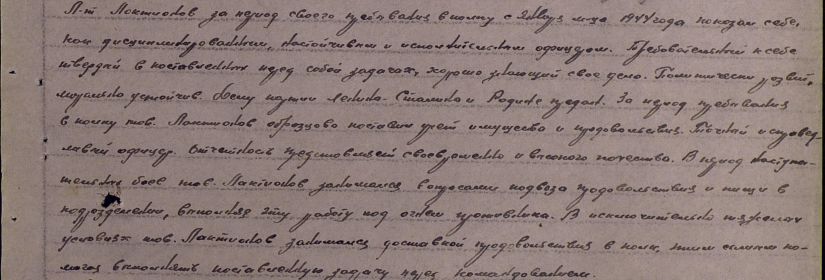 Л-т Локтионов за период своего пребывания в полку с м-ца 1944 года показал себя,
как дисциплинированным, настойчивым и исполнительным офицером. Требовательный к себе
твердый в поставленных перед собой задачах, хорошо знающий свое дело. Политически развит,
морально устойчив. Делу партии Ленина-Сталина и Родине предан. За период пребывания
в полку тов. Локтионов образцово поставил учет имущества и продовольствия. Точный и справед-
ливый офицер. Отчетность представляет своевременно и высокого качества. В период наступа-
тельных боев тов. Локтионов занимался вопросами подвоза продовольствия и пищи в
подразделении, выполняя эту работу под огнем противника. В исключительно тяжелых
условиях тов. Локтионов занимался доставкой продовольствия в полк, этим самым по-
могая выполнять поставленную задачу перед командованием.